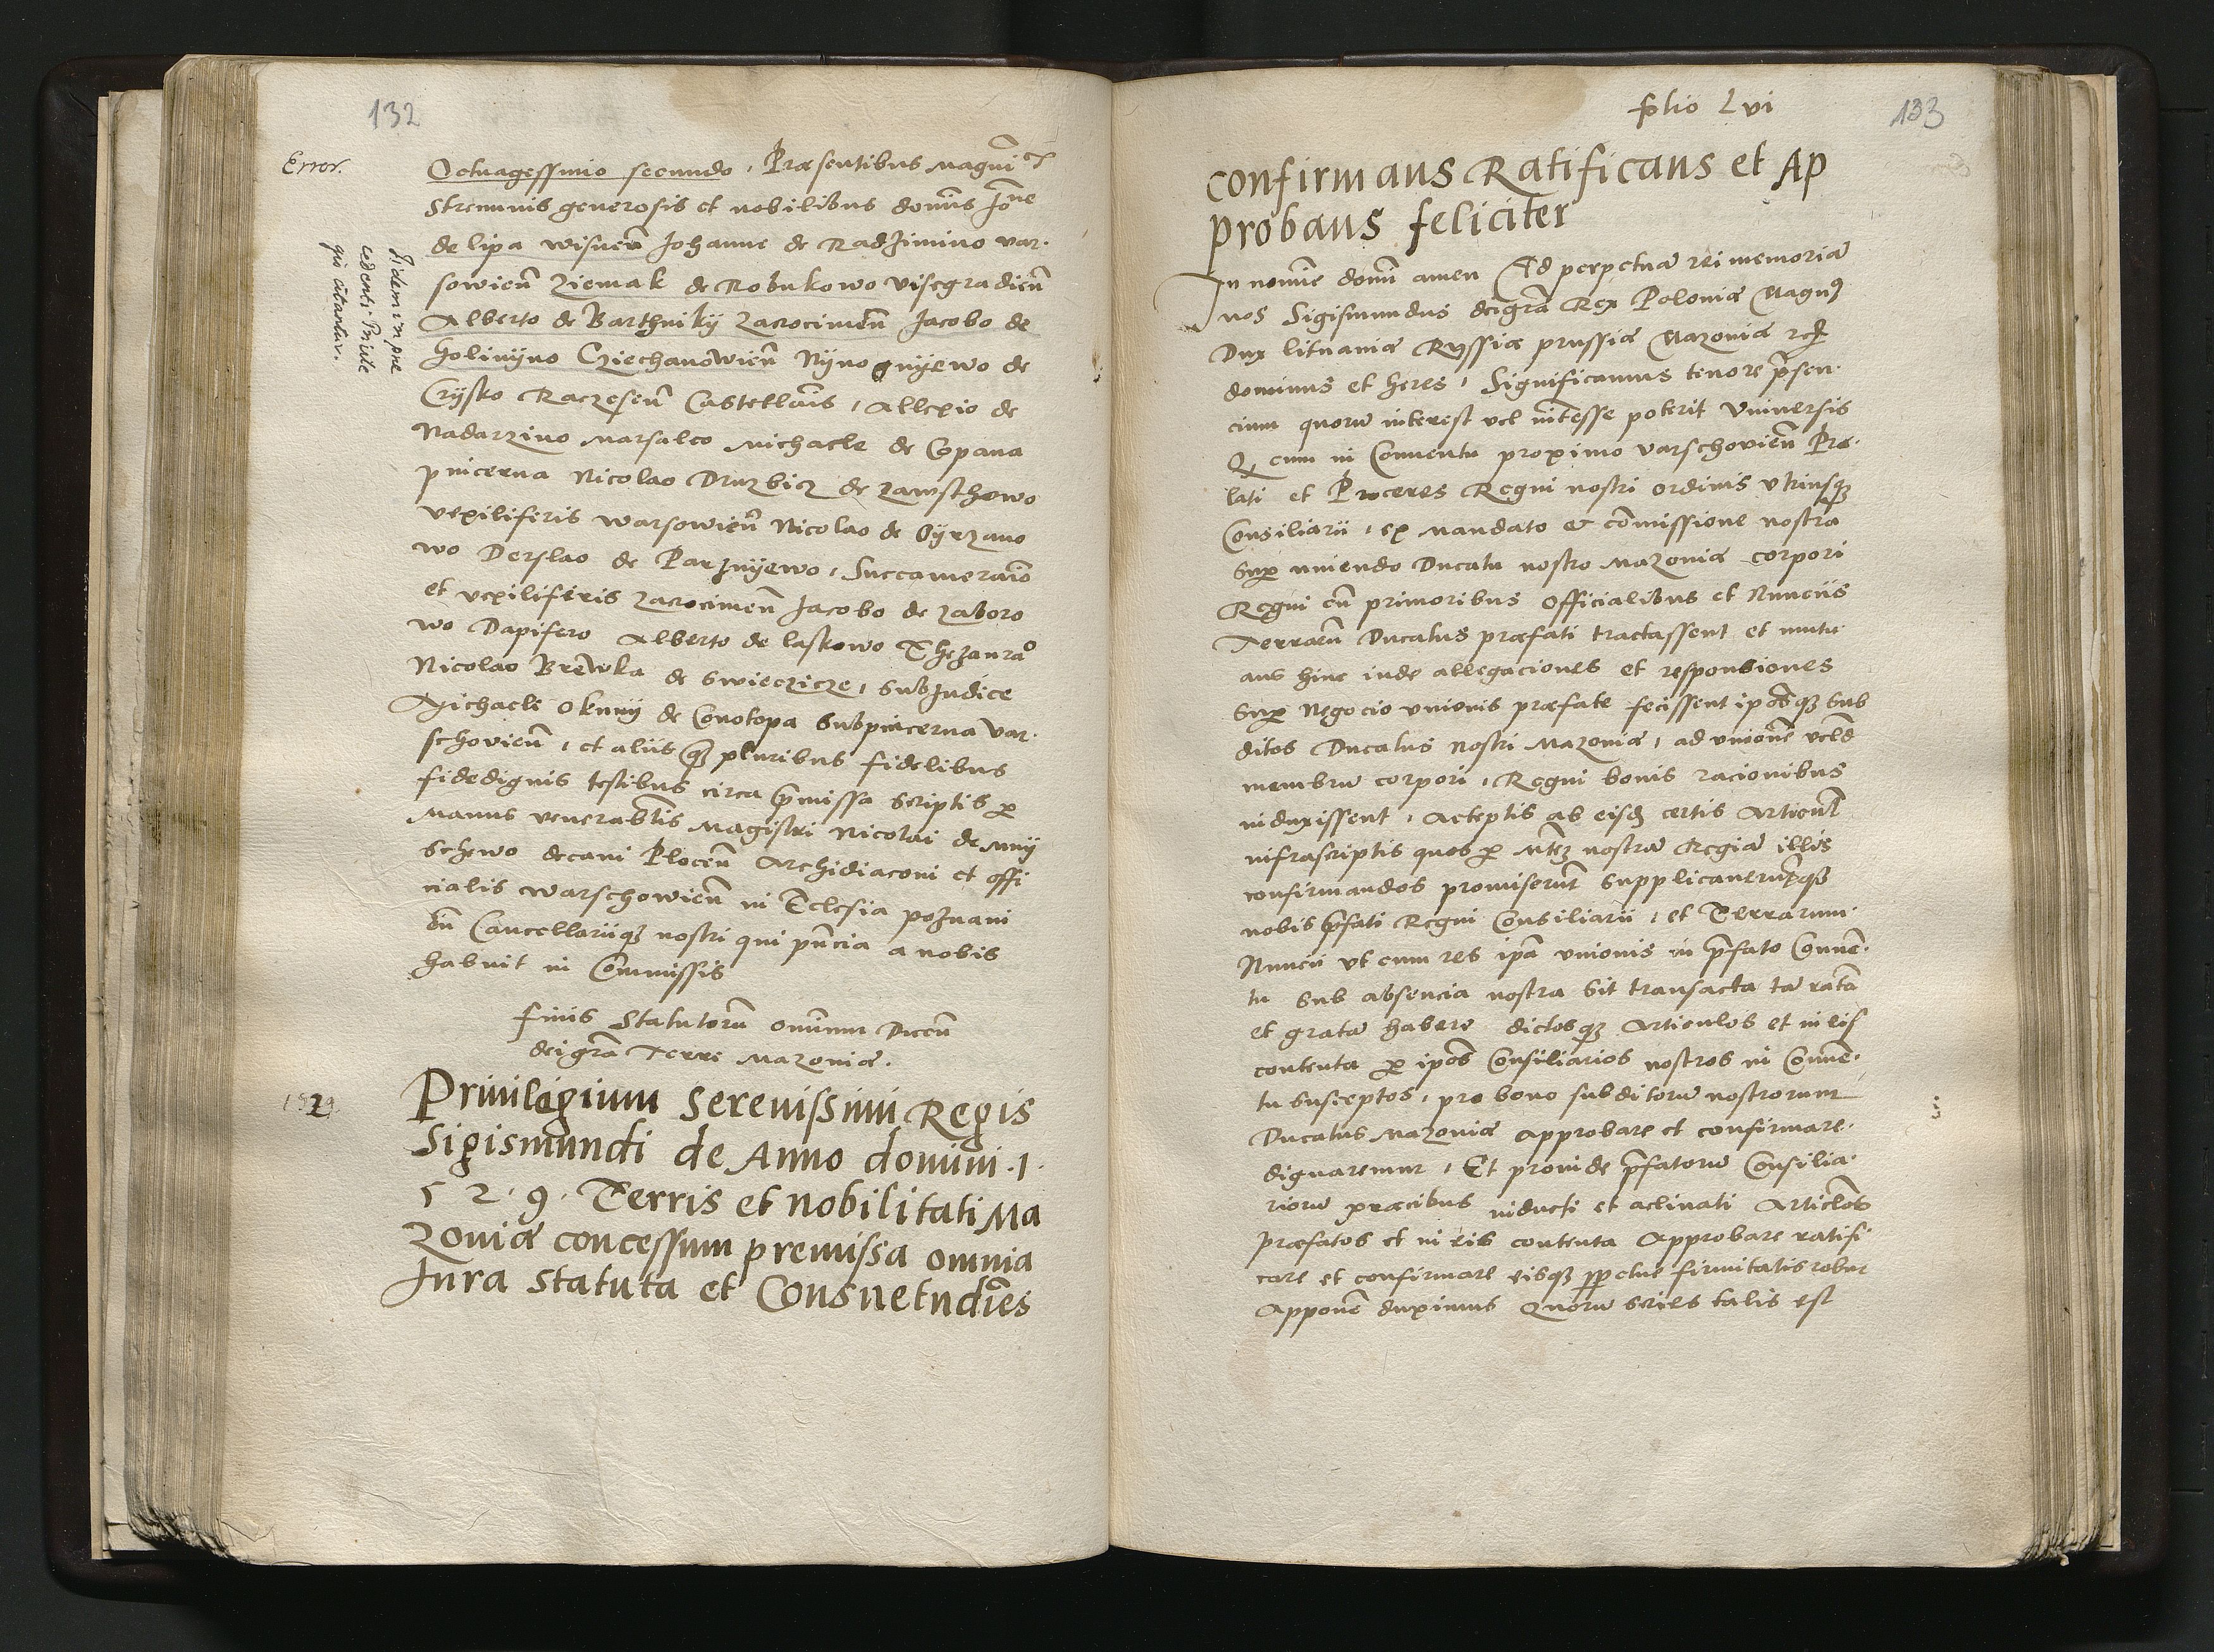 132
Error.
Octuagessimo secundo, Præsentibus Magnīcis
Strennuis generosis et nobilibus dominis Joh̄ne
de lipa wisnen̄ Johanne de Radzimino var-
sowien̄ Ziemak de Robukowo visegradien̄
Alberto de Barthniky Zacrocimen̄ Jacobo de
Golinijno Cziechanowien̄ Nijnognijewo de
Crijsko Raczesen̄ Castellān̄is, Allexio de
Nadarzino Marsalco Michaele de Copana
pincerna Nicolao Druzbicz de Zawschowo
vexiliferis warsowien̄ Nicolao de Oijrzano
wo Derslao de Parznijewo, Succamerario
et vexiliferis Zacrocimen̄ Jacobo de Zaboro
wo Dapifero Alberto de laskowo Thezaurao
Nicolao Brewka de Swieczicze, SubJudice
Michaele Okunij de Conotopa Subpincerna Var-
schovien̄, et aliis q̄z pluribus fidelibus
fidedignis testibus circa p̄missa Scriptis per
Manus venerabilis Magistri Nicolai de Mnij
Schewo decani Plocen̄ Archidiaconi et offi
cialis warschowien̄ in Eclesia poznani
en̄ Cancellariiq̄z nostri qui pn̄cia a nobis
habuit in Commissis
Jidem in præ
cedenti Privile
gio citantur.
finis Statutorū omnium Ducū
dei grā Terre Mazoniæ.
1529.
Priuilegium Serenissimi Regis
Sigismundi de Anno domini .1.
5 2. 9. Terris et nobilitati Ma
zoniæ concessum premissa omnia
Jura Statuta et Consuetudīes
folio Lvi
133
confirmans Ratificans et Ap
probans feliciter
In nomine domī amen Ad perpetuā rei memoriā
nos Sigismundus dei grā Rex Poloniæ Magnus
Dux lituaniæ Ryssiæ prussiæ Mazoniæ etc̄
dominus et heres, Significamus tenore p̄sen-
cium quorū interest vel intesse poterit Vniuersis
Q, cum in Conuentu proximo varschovien̄ Præ-
lati et Proceres Regni nostri ordinis vtriusq̄z
Consiliarii, ex mandato et com̄issione nostra
Super vniendo Ducatu nostro Mazoniæ corpori
Regni cū primoribus officialibus et Nunciis
Terrarū Ducatus præfati tractassent et mutu
aus hinc inde allegaciones et responsiones
Super Negocio vnionis præfate fecissent ipōsq̄z Sub
ditos Ducatus nostri Mazoniæ, ad vnionē velut
membrū corpori, Regni bonis racionibus
induxissent, Acceptis ab eisdē certis Articul̄
infrascriptis quos per Mt̄ē nostrā Regiā illis
confirmandos promiserūt Supplicaueruntq̄z
nobis p̄fati Regni Consiliarii, et Terrarum
Nuncii vt cum res ipā vnionis in p̄fato Conuē-
tu Sub absencia nostra Sit transacta tā ratā
et gratā habere dictosq̄z Articulos et in eis
contenta per ipōs Consiliarios nostros in Conuē-
tu Susceptos, pro bono subditorū nostrorum
Ducatus Mazoniæ approbare et confirmare-
dignaremur, Et proinde p̄fatorū Consilia-
riorū præcibus inducti et aclinati Articlōs
præfatos et in eis contenta Approbare ratifi
care et confirmare eisq̄z ppetue firmitatis robur
Apponē duximus Quorū Series talis est